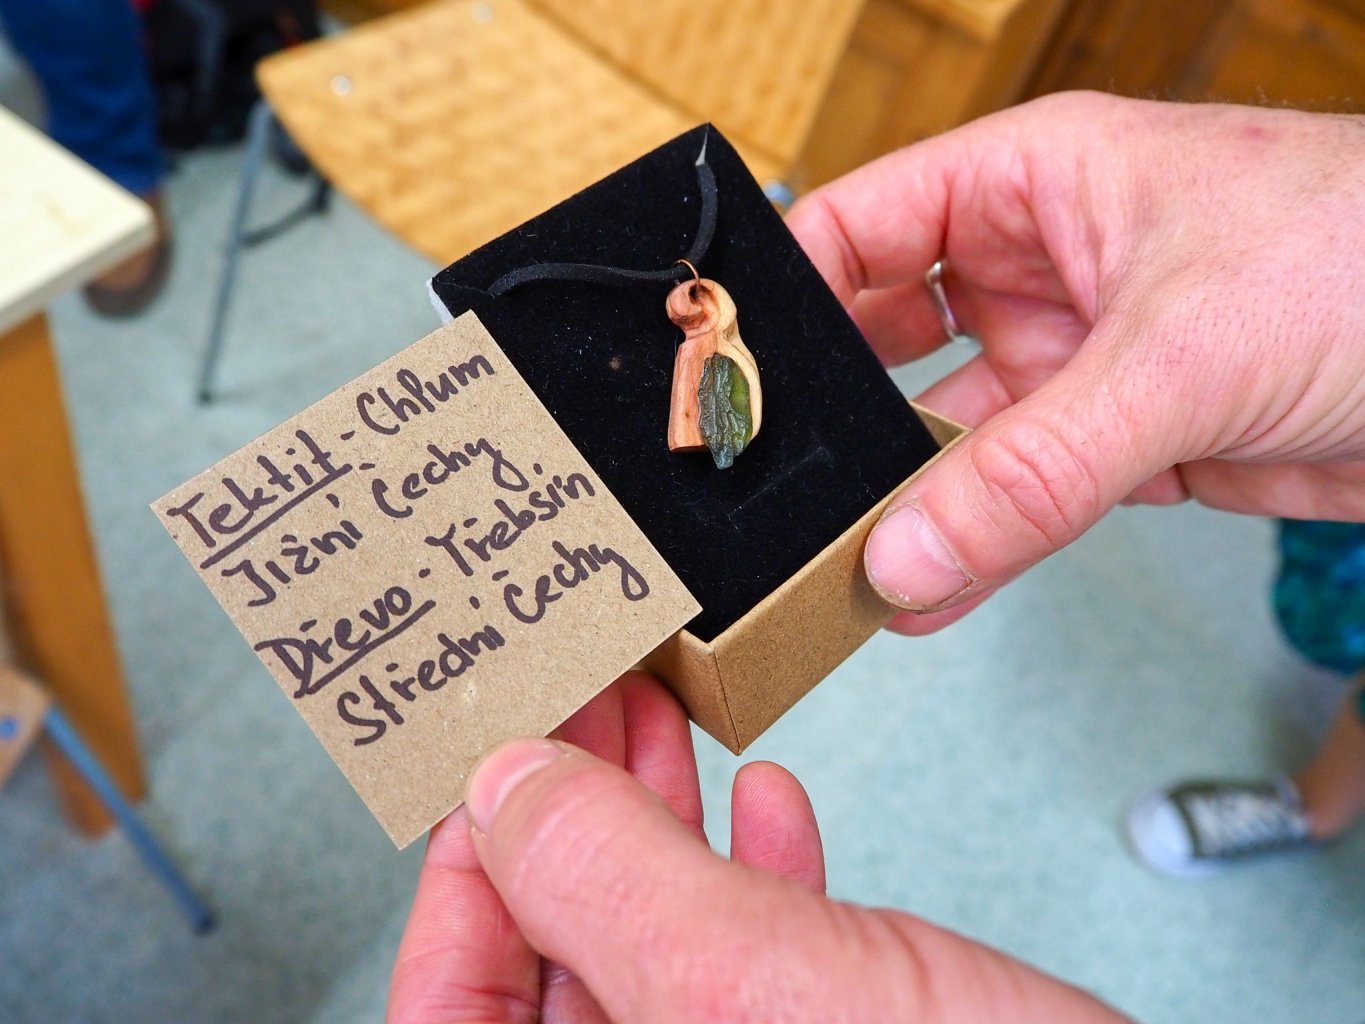 Tektit - Chlum
Jižní Čechy
Dřevo - Třebsín
Střední Čechy